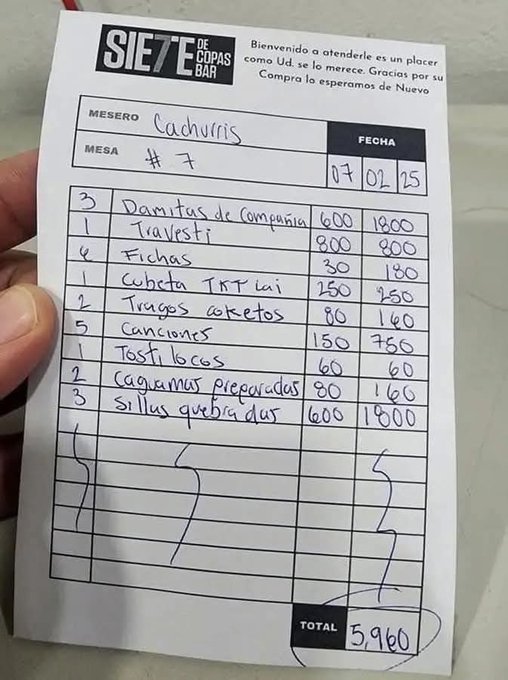 SIE7E DE COPAS BAR
Bienvenido a atenderle es un placer
como Ud. se lo merece. Gracias por su
Compra lo esperamos de Nuevo
MESERO Cachurris
FECHA
MESA # 7
07 02 25
3 Damitas de Compañia 600 1800
1 Travesti 800 800
Fichas 30 180
1 Cubeta TKT lai 250 250
2 Tragos coketos 80 160
5 Canciones 150 750
1 Tosti locos 60 60
2 Caguamas preparadas 80 160
3 Sillas quebradas 600 1800
TOTAL 5,960